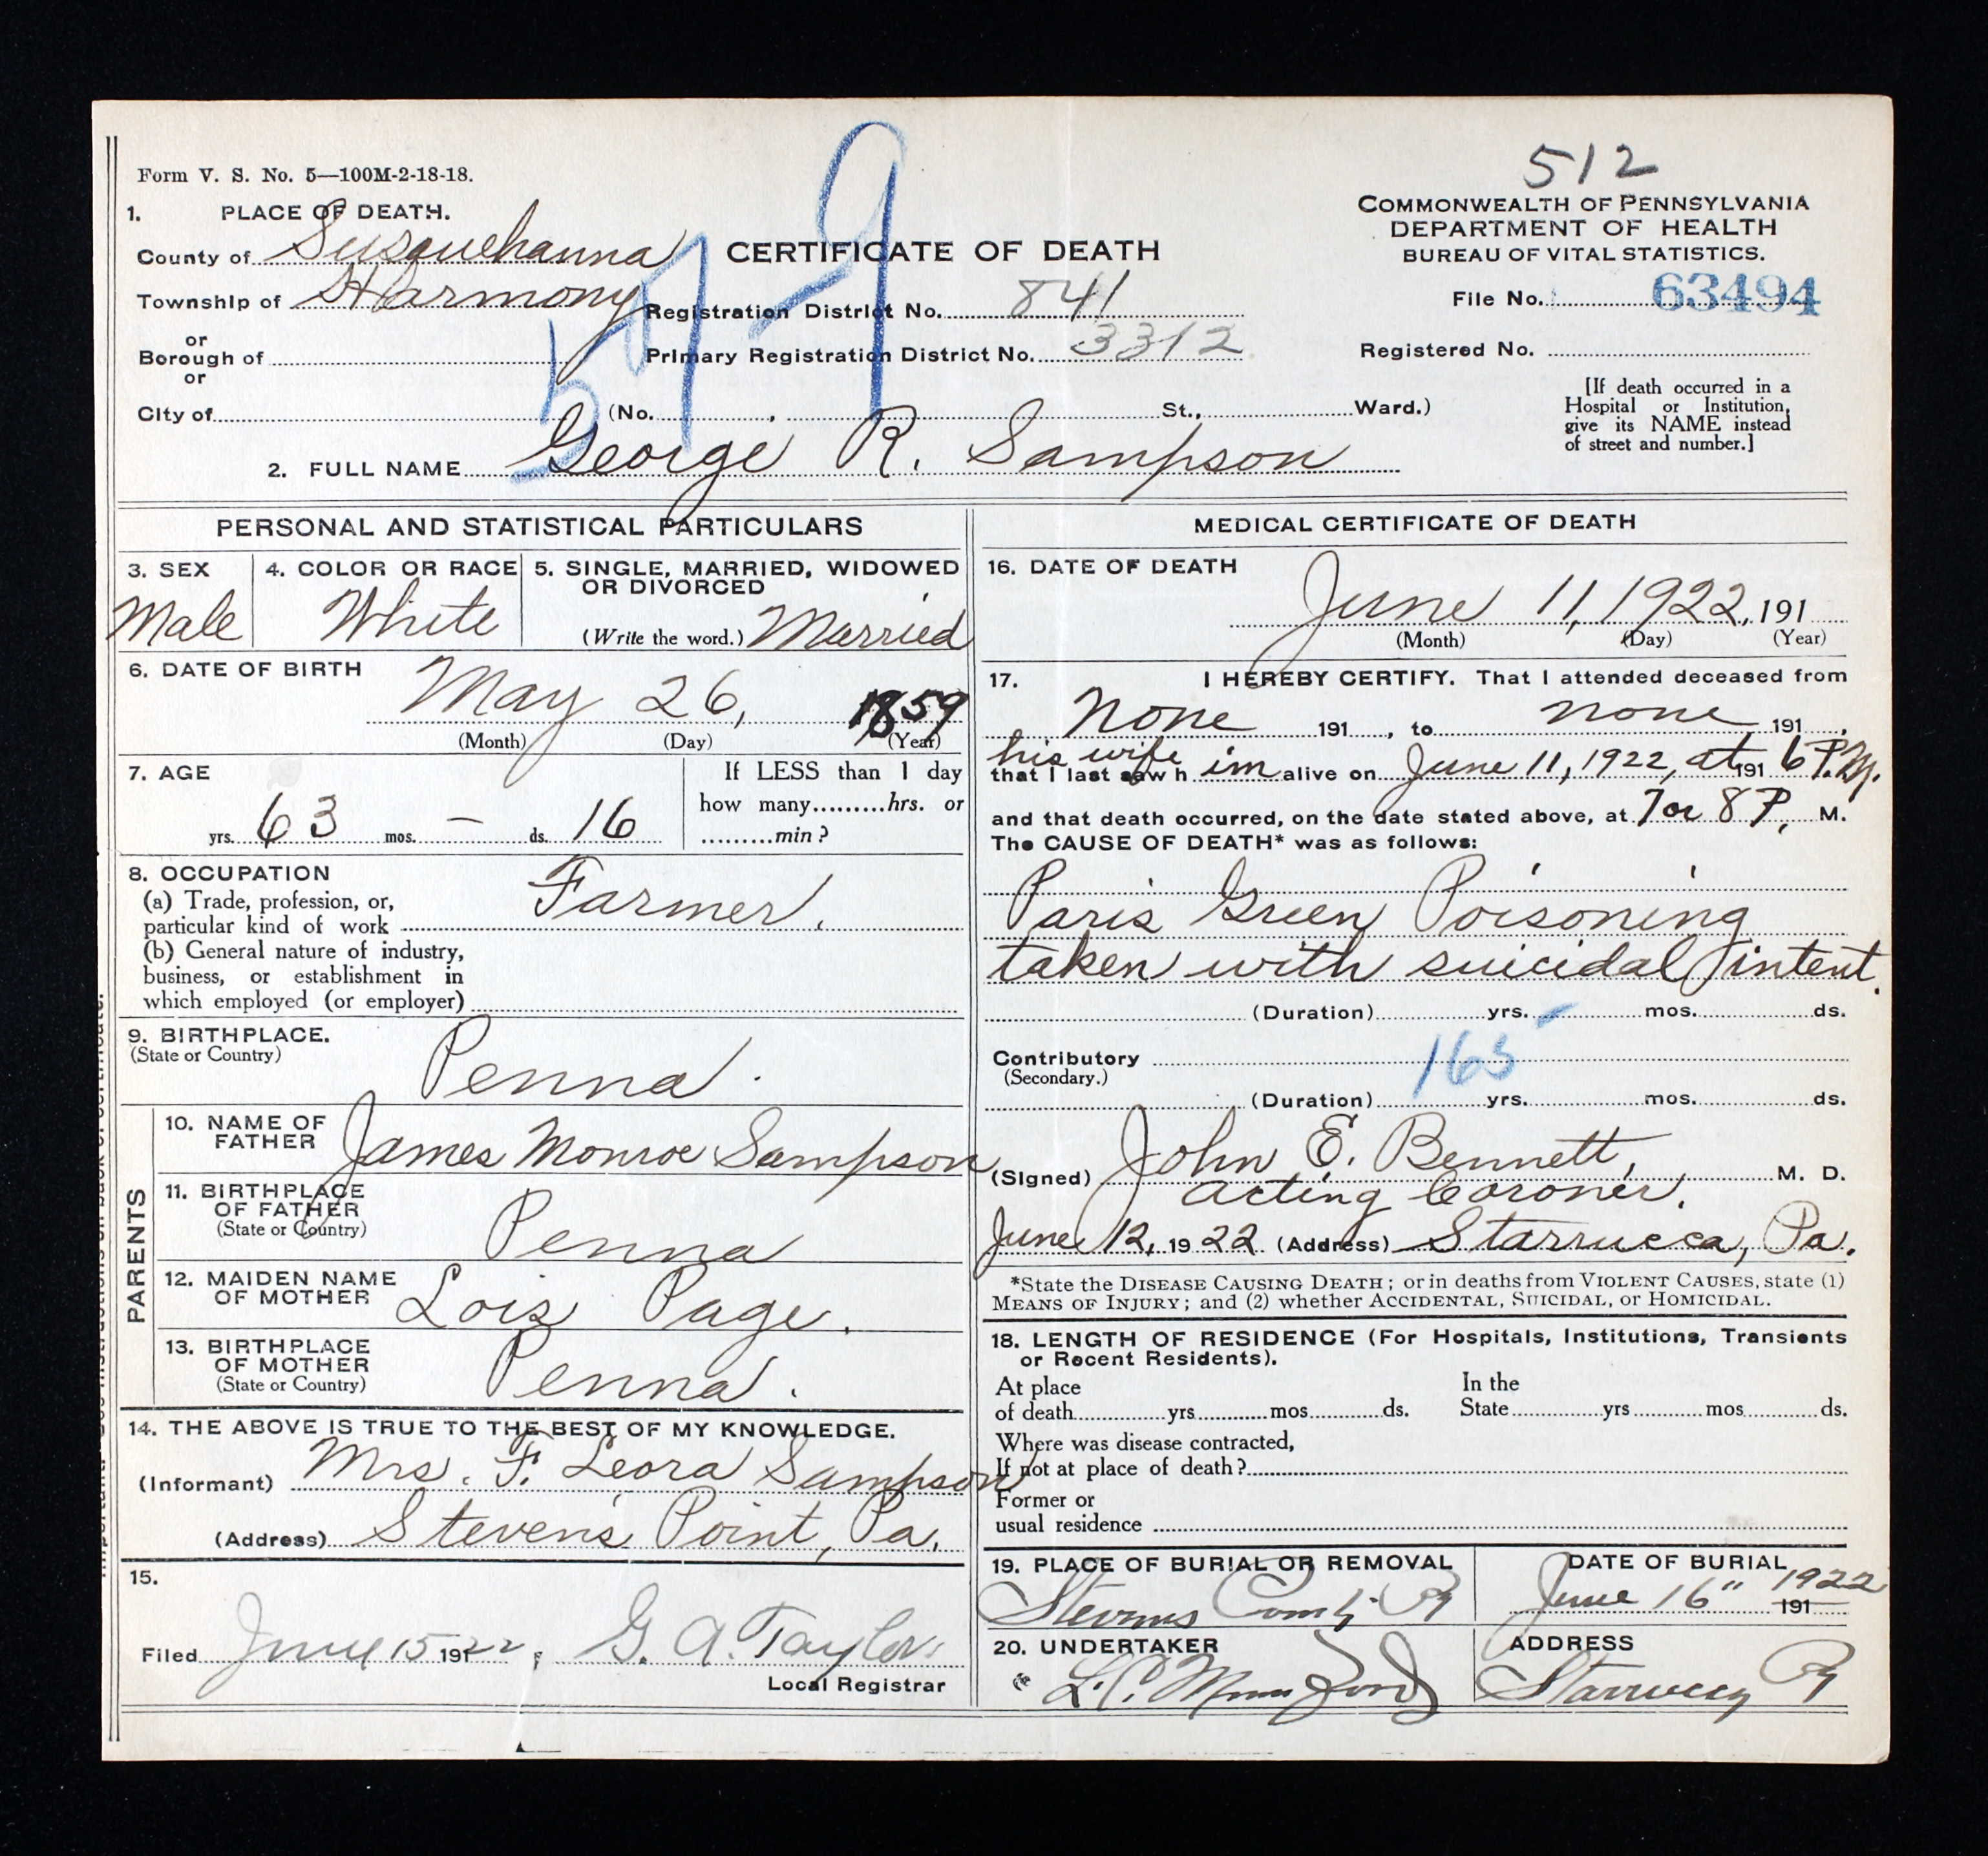 512
Form V. S. No. 5—100M-2-18-18.
COMMONWEALTH OF PENNSYLVANIA
DEPARTMENT OF HEALTH
BUREAU OF VITAL STATISTICS.
1. PLACE OF DEATH.
County of Susquehanna
CERTIFICATE OF DEATH
Township of Harmony
Registration District No. 841
File No. 63494
or
Borough of
Primary Registration District No. 3312
Registered No.
or
City of (No. , St., Ward.)
[If death occurred in a
Hospital or Institution,
give its NAME instead
of street and number.]
2. FULL NAME George R. Sampson
PERSONAL AND STATISTICAL PARTICULARS
3. SEX
Male
4. COLOR OR RACE
White
5. SINGLE, MARRIED, WIDOWED
OR DIVORCED
(Write the word.) Married
6. DATE OF BIRTH
May 26, 1859
(Month) (Day) (Year)
7. AGE
63 yrs. — mos. 16 ds.
If LESS than 1 day
how many.........hrs. or
.........min?
8. OCCUPATION
(a) Trade, profession, or,
particular kind of work Farmer.
(b) General nature of industry,
business, or establishment in
which employed (or employer)
9. BIRTHPLACE.
(State or Country)
Penna.
PARENTS
10. NAME OF
FATHER James Monroe Sampson
11. BIRTHPLACE
OF FATHER
(State or Country)
Penna
12. MAIDEN NAME
OF MOTHER Lois Page.
13. BIRTHPLACE
OF MOTHER
(State or Country)
Penna.
14. THE ABOVE IS TRUE TO THE BEST OF MY KNOWLEDGE.
(Informant) Mrs. F. Leora Sampson
(Address) Stevens Point, Pa.
15.
Filed June 15 1922, G. A. Taylor
Local Registrar
MEDICAL CERTIFICATE OF DEATH
16. DATE OF DEATH
June 11, 1922, 191
(Month) (Day) (Year)
17. I HEREBY CERTIFY. That I attended deceased from
None 191 , to none 191 ,
his wife
that I last saw h im alive on June 11, 1922, at 191 6 P.M.
and that death occurred, on the date stated above, at 7 or 8 P. M.
The CAUSE OF DEATH* was as follows:
Paris Green Poisoning
taken with suicidal intent.
(Duration) yrs. mos. ds.
Contributory
(Secondary.)
165
(Duration) yrs. mos. ds.
(Signed) John E. Bennett, M. D.
acting Coroner.
June 12, 1922 (Address) Starrucca, Pa.
*State the DISEASE CAUSING DEATH; or in deaths from VIOLENT CAUSES, state (1)
MEANS OF INJURY; and (2) whether ACCIDENTAL, SUICIDAL, or HOMICIDAL.
18. LENGTH OF RESIDENCE (For Hospitals, Institutions, Transients
or Recent Residents).
At place
of death yrs mos ds.
In the
State yrs mos ds.
Where was disease contracted,
If not at place of death?
Former or
usual residence
19. PLACE OF BURIAL OR REMOVAL
Stevens
DATE OF BURIAL
June 16" 1922
191
20. UNDERTAKER
L. C. Mumford
ADDRESS
Starrucca